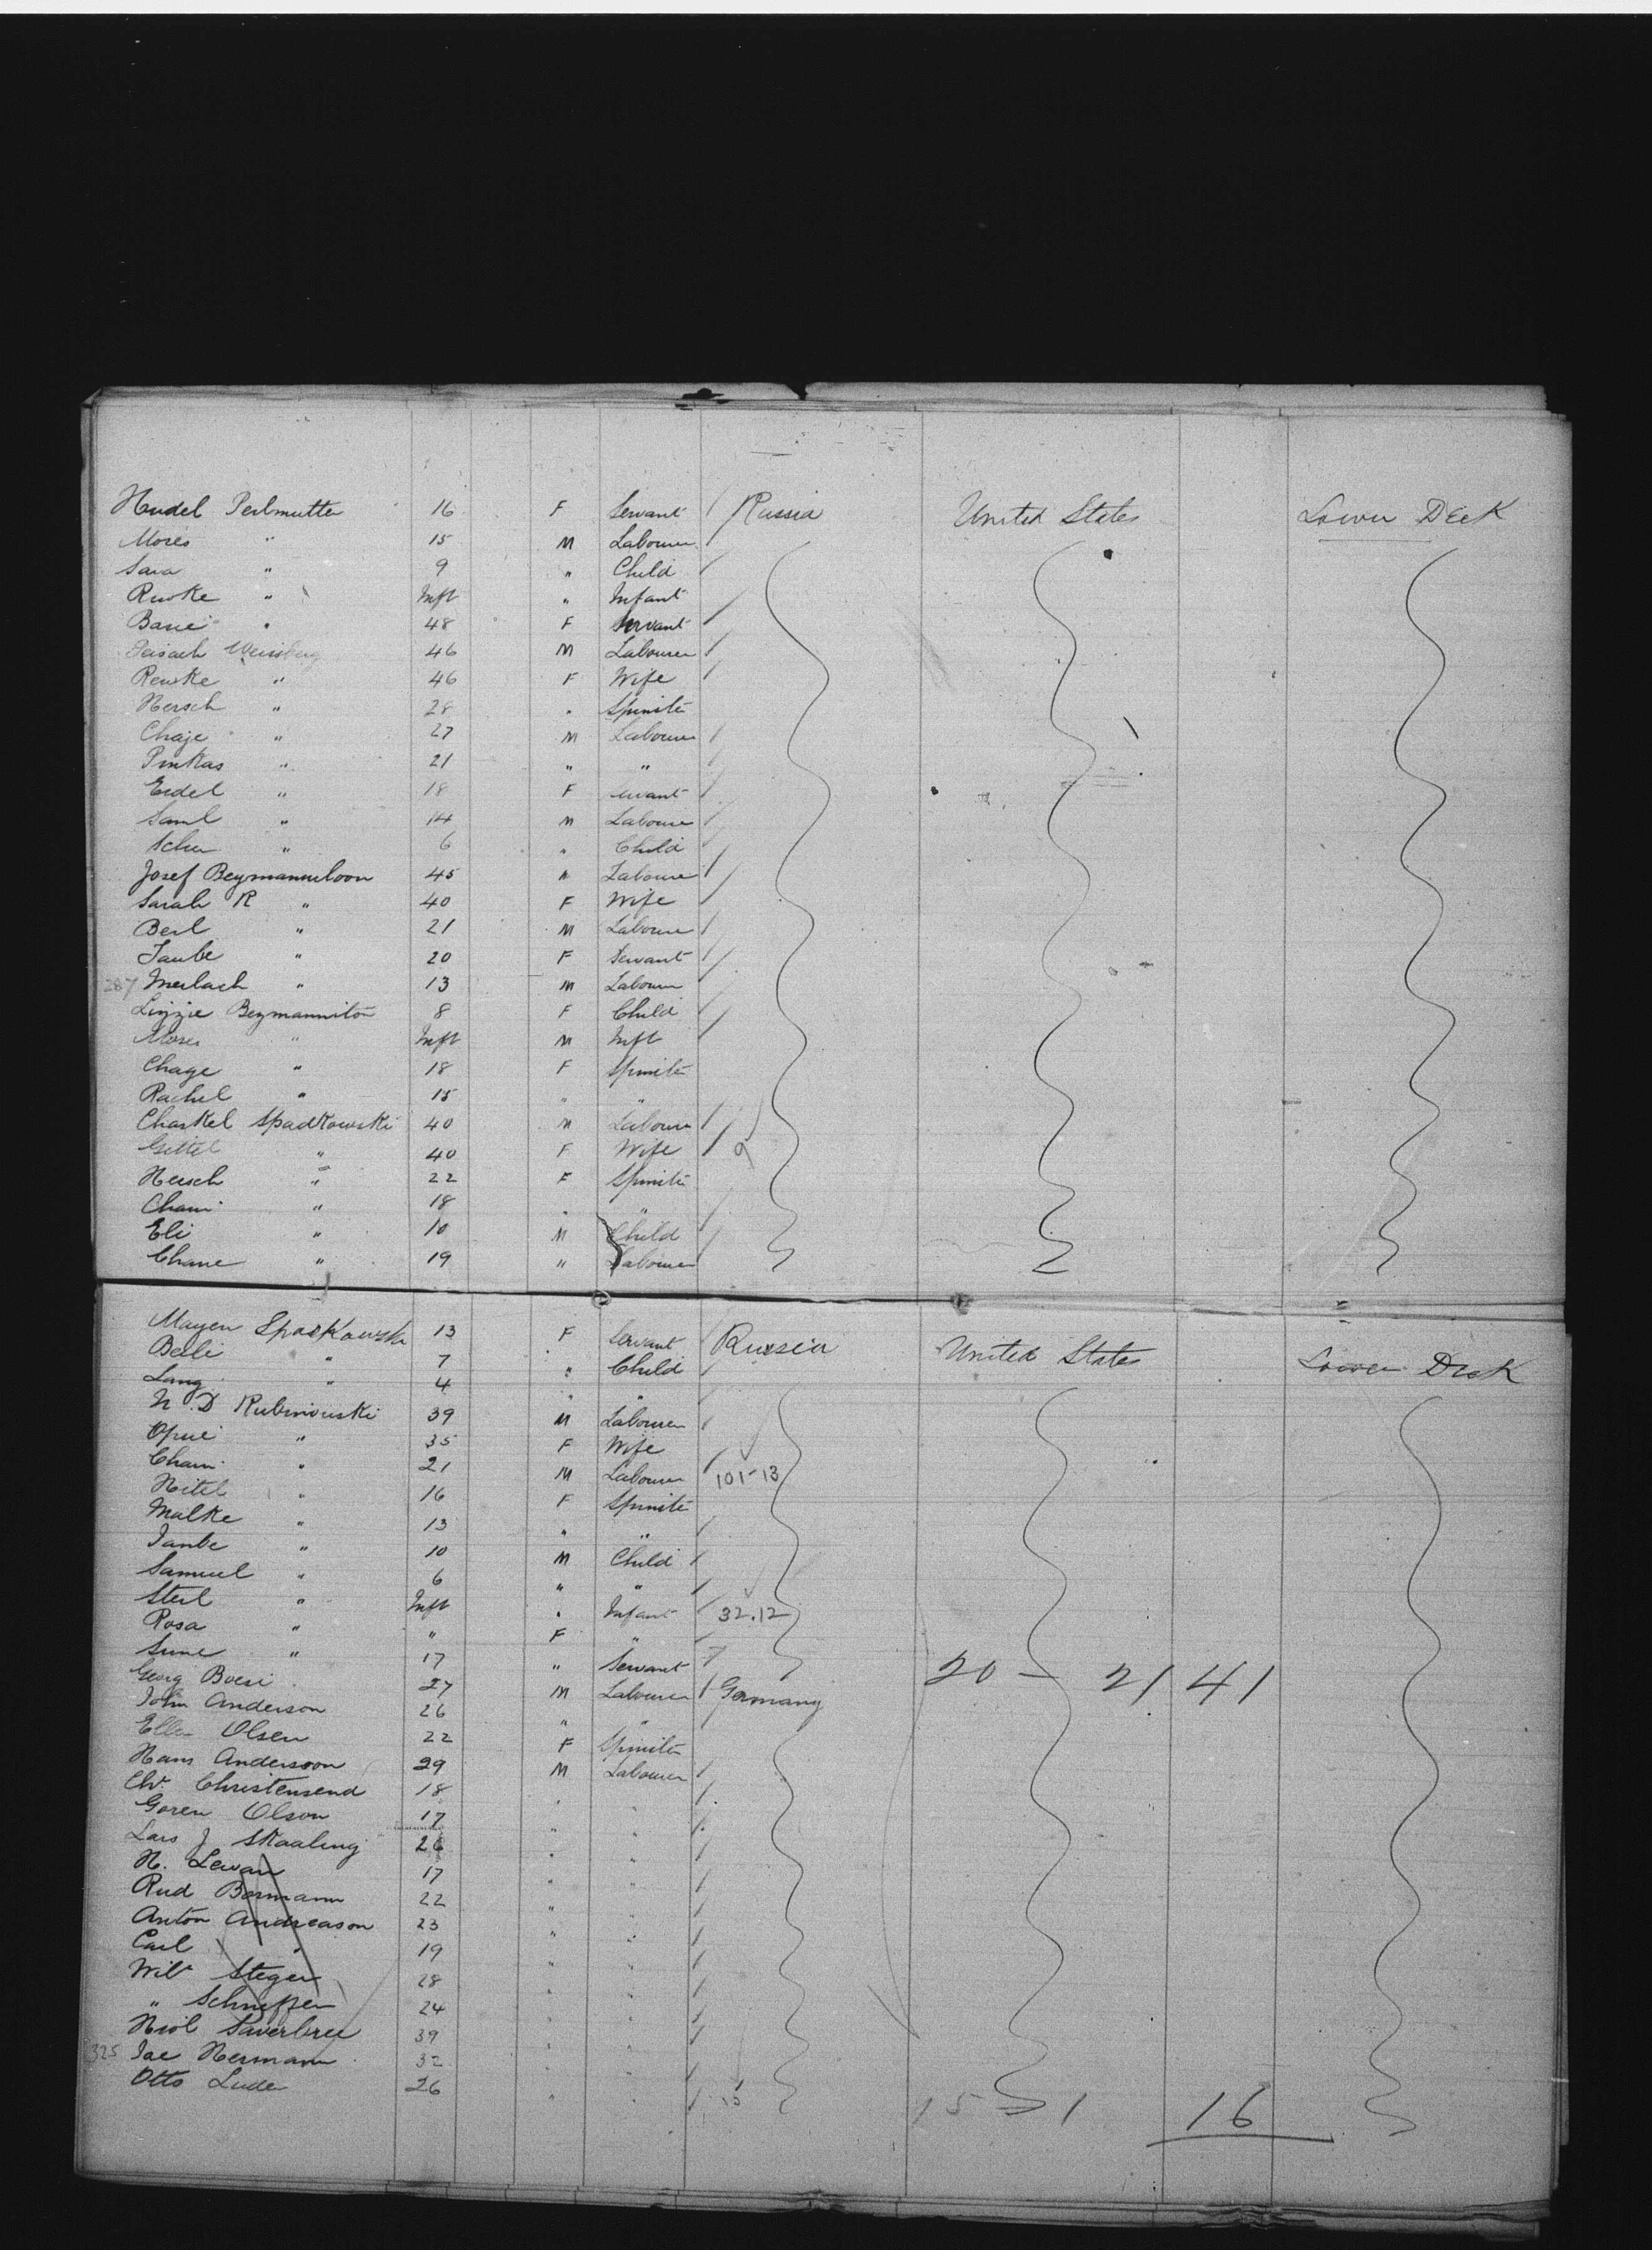 Hudel Perlmutter 16 F Servant Russia United States Lower Deck
Moses " 15 M Labourer
Sara " 9 " Child
Ruske " Inft " Infant
Basie " 48 F Servant
Weissberg 46 M Labourer
Rewke " 46 F Wife
Hersch " 28 " Spinster
Chaje " 27 M Labourer
Pinkas " 21 " "
Eidel " 18 F Servant
Saml " 14 M Labourer
" 6 " Child
Josef 45 " Labourer
Sarah R " 40 F Wife
Berl " 21 M Labourer
Taube " 20 F Servant
287 " 13 M Labourer
Lizzie 8 F Child
Moses " Inft M Inft
Chage " 18 F Spinster
Rachel " 15 " "
Chaskel Spadkowski 40 M Labourer
Gittel " 40 F Wife 9
Hersch " 22 F Spinster
Chani " 18 " "
Eli " 10 M Child
Chane " 19 " Labourer
Mayer Spadkowski 13 F Servant Russia United States Lower Deck
Beile " 7 " Child
Lang " 4 " "
N. D Rubinouski 39 M Labourer
" 35 F Wife
Cham " 21 M Labourer 101-13
Hitel " 16 F Spinster
Malke " 13 " "
Taube " 10 M Child
Samuel " 6 " "
Sterl " Inft " Infant 32.12
Rosa " " F "
Sune " 17 " Servant 20 - 21 41
Georg Boesi 27 M Labourer Germany
John Anderson 26 " "
Ellen Olsen 22 F Spinster
Hans Andersoon 29 M Labourer
Chr. Christensend 18 " "
Goren Olson 17 " "
Lars J Skaaling 26 " "
N. Lewan 17 " "
Rud Bormann 22 " "
Anton Andreason 23 " "
Carl " 19 " "
Wilh Steger 28 " "
" 24 " "
39 " "
325 Jac Hermann 32 " "
Otto Luder 26 " " 15 1 16